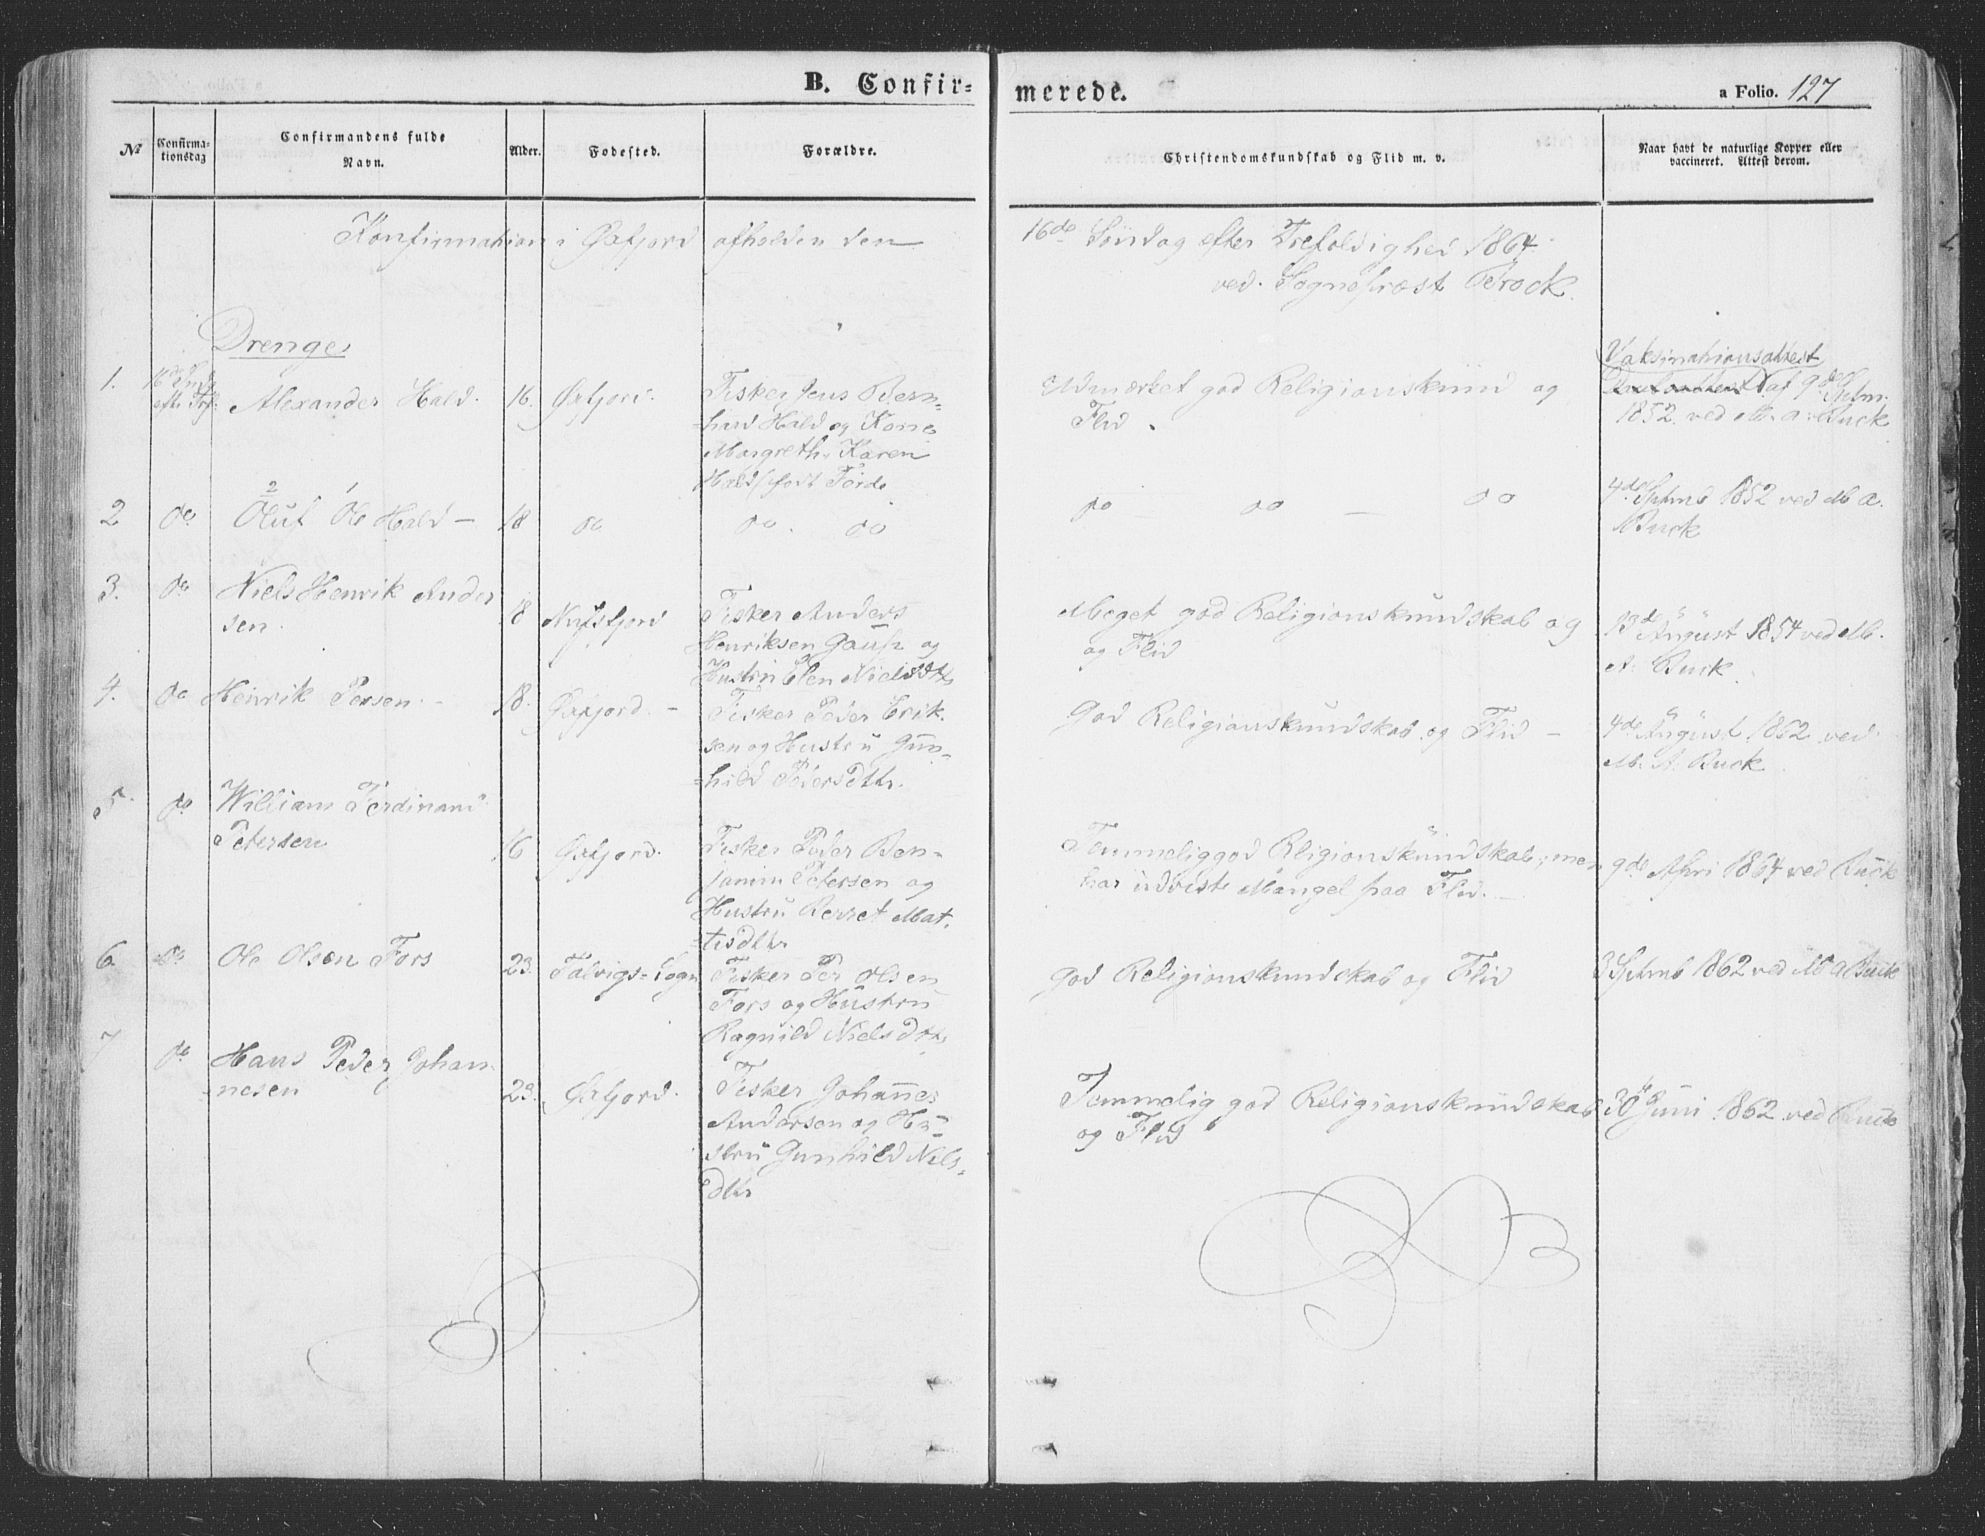 B. Confir=
merede.
a Folio. 127
No
Confirma-
tionsdag
Confirmandens fulde
Navn.
Alder.
Fødested.
Forældre.
Christendomskundskab og Flid m. v.
Naar havt de naturlige Kopper eller
vaccineret. Attest derom.
Konfirmation i Øxfjord afholden den 16de Søndag efter Trefoldighed 1864
ved Sognepræst Brock.
Drenge
1. 16de Snd.
eft. Tref.
Alexander Hald. 16. Øxfjord.
Fisker Jens Bern-
=hard Hald og Kone
Margrethe Karen
Hald født Förde
Udmærket god Religionskund og
Flid.
Vaksinationsattest
af 9de Septm.
1852 ved M. A. Buck
2 do Oluf Ole Hald - 18 do do. do
2 1
do - do - do
4de Septmb 1852 ved M A.
Buck
3. do Niels Henrik Ander
sen. 18 Nufsfjord
Fisker Anders
Henriksen Gausz og
Hustru Elen Nielsdtr
Meget god Religionskundskab og
og Flid
13de August 1854 ved M.
A. Buck.
4. do Henrik Persen. - 18. Øxfjord. -
Fisker Peder Erik-
sen og Hustru Gun-
=hild Pedersdtr.
God Religionskundskab og Flid -
4de August 1862 ved
M. A. Buck
5. do William Ferdinand
Petersen 16 Øxfjord.
Fisker Peder Ben-
jamin Petersen og
Hustru Berret Mat-
=tisdtr
Temmeliggod Religionskundskab, men
har udviste Mangel paa Flid. -
9de Apri 1864 ved Buck
6. do Ole Olsen Fors 23. Talvigs=Sogn
Fisker Per Olsen
Fors og Hustru
Ragnild Nielsdtr
God Religionskundskab og Flid
3 Septmb 1862 ved M A Buck
7 do Hans Peder Johan
=nesen 23. Øxfjord.
Fisker Johannes
Andersen og Hu
stru Gunhild Nils-
dtr
Temmelig god Religionskundskab
og Flid
30 Juni 1862 ved Buck